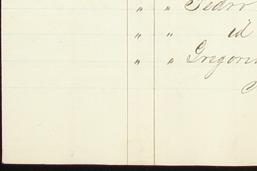 " " Pedro
" " id
" " Gregorio